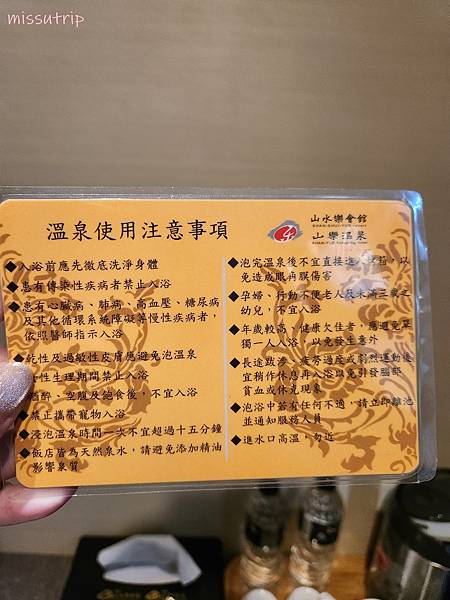 missutrip
溫泉使用注意事項
山水樂會館
山樂溫泉
◆入浴前應先徹底洗淨身體
◆患有傳染性疾病者禁止入浴
◆患有心臟病、肺病、高血壓、糖尿病
及其他循環系統障礙等慢性疾病者,
依照醫師指示入浴
性及過敏性皮膚應避免泡溫泉
性生理期間禁止入浴
酒醉、空腹及飽食後,不宜入浴
◆禁止攜帶寵物入浴
◆浸泡溫泉時間一次不宜超過十五分鐘
◆飯店皆為天然泉水,請避免添加精油
影響泉質
◆泡完溫泉後不宜直接進,以
免造成眼角膜傷害
◆孕婦、行動不便老人及未滿三歲之
幼兒,不宜入浴
◆年歲較高、健康欠佳者,應避免單
獨一人入浴,以免發生意外
◆長途跋涉、疲勞過度或劇烈運動後
宜稍作休息再入浴以免引發腦部
貧血或休克現象
◆泡浴中若有任何不適,請立即離池
並通知服務人員
◆進水口高溫,勿近